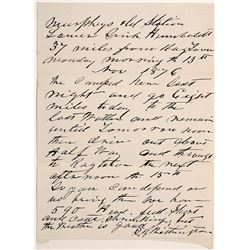 Murpheys old Station
Lower Sink Humboldt
37 miles from Ragtown
Monday morning the 13th
Nov 1876
We camped here last
night and go Eight
miles today to the
last Water and remain
until Tomorrow noon
then drive out about
Half Way and through
to Ragtown the next
afternoon the 15th
Logan can depend on
us being there on hour
590 Head feed Short
and Cattle Shrinking but
the weather is good